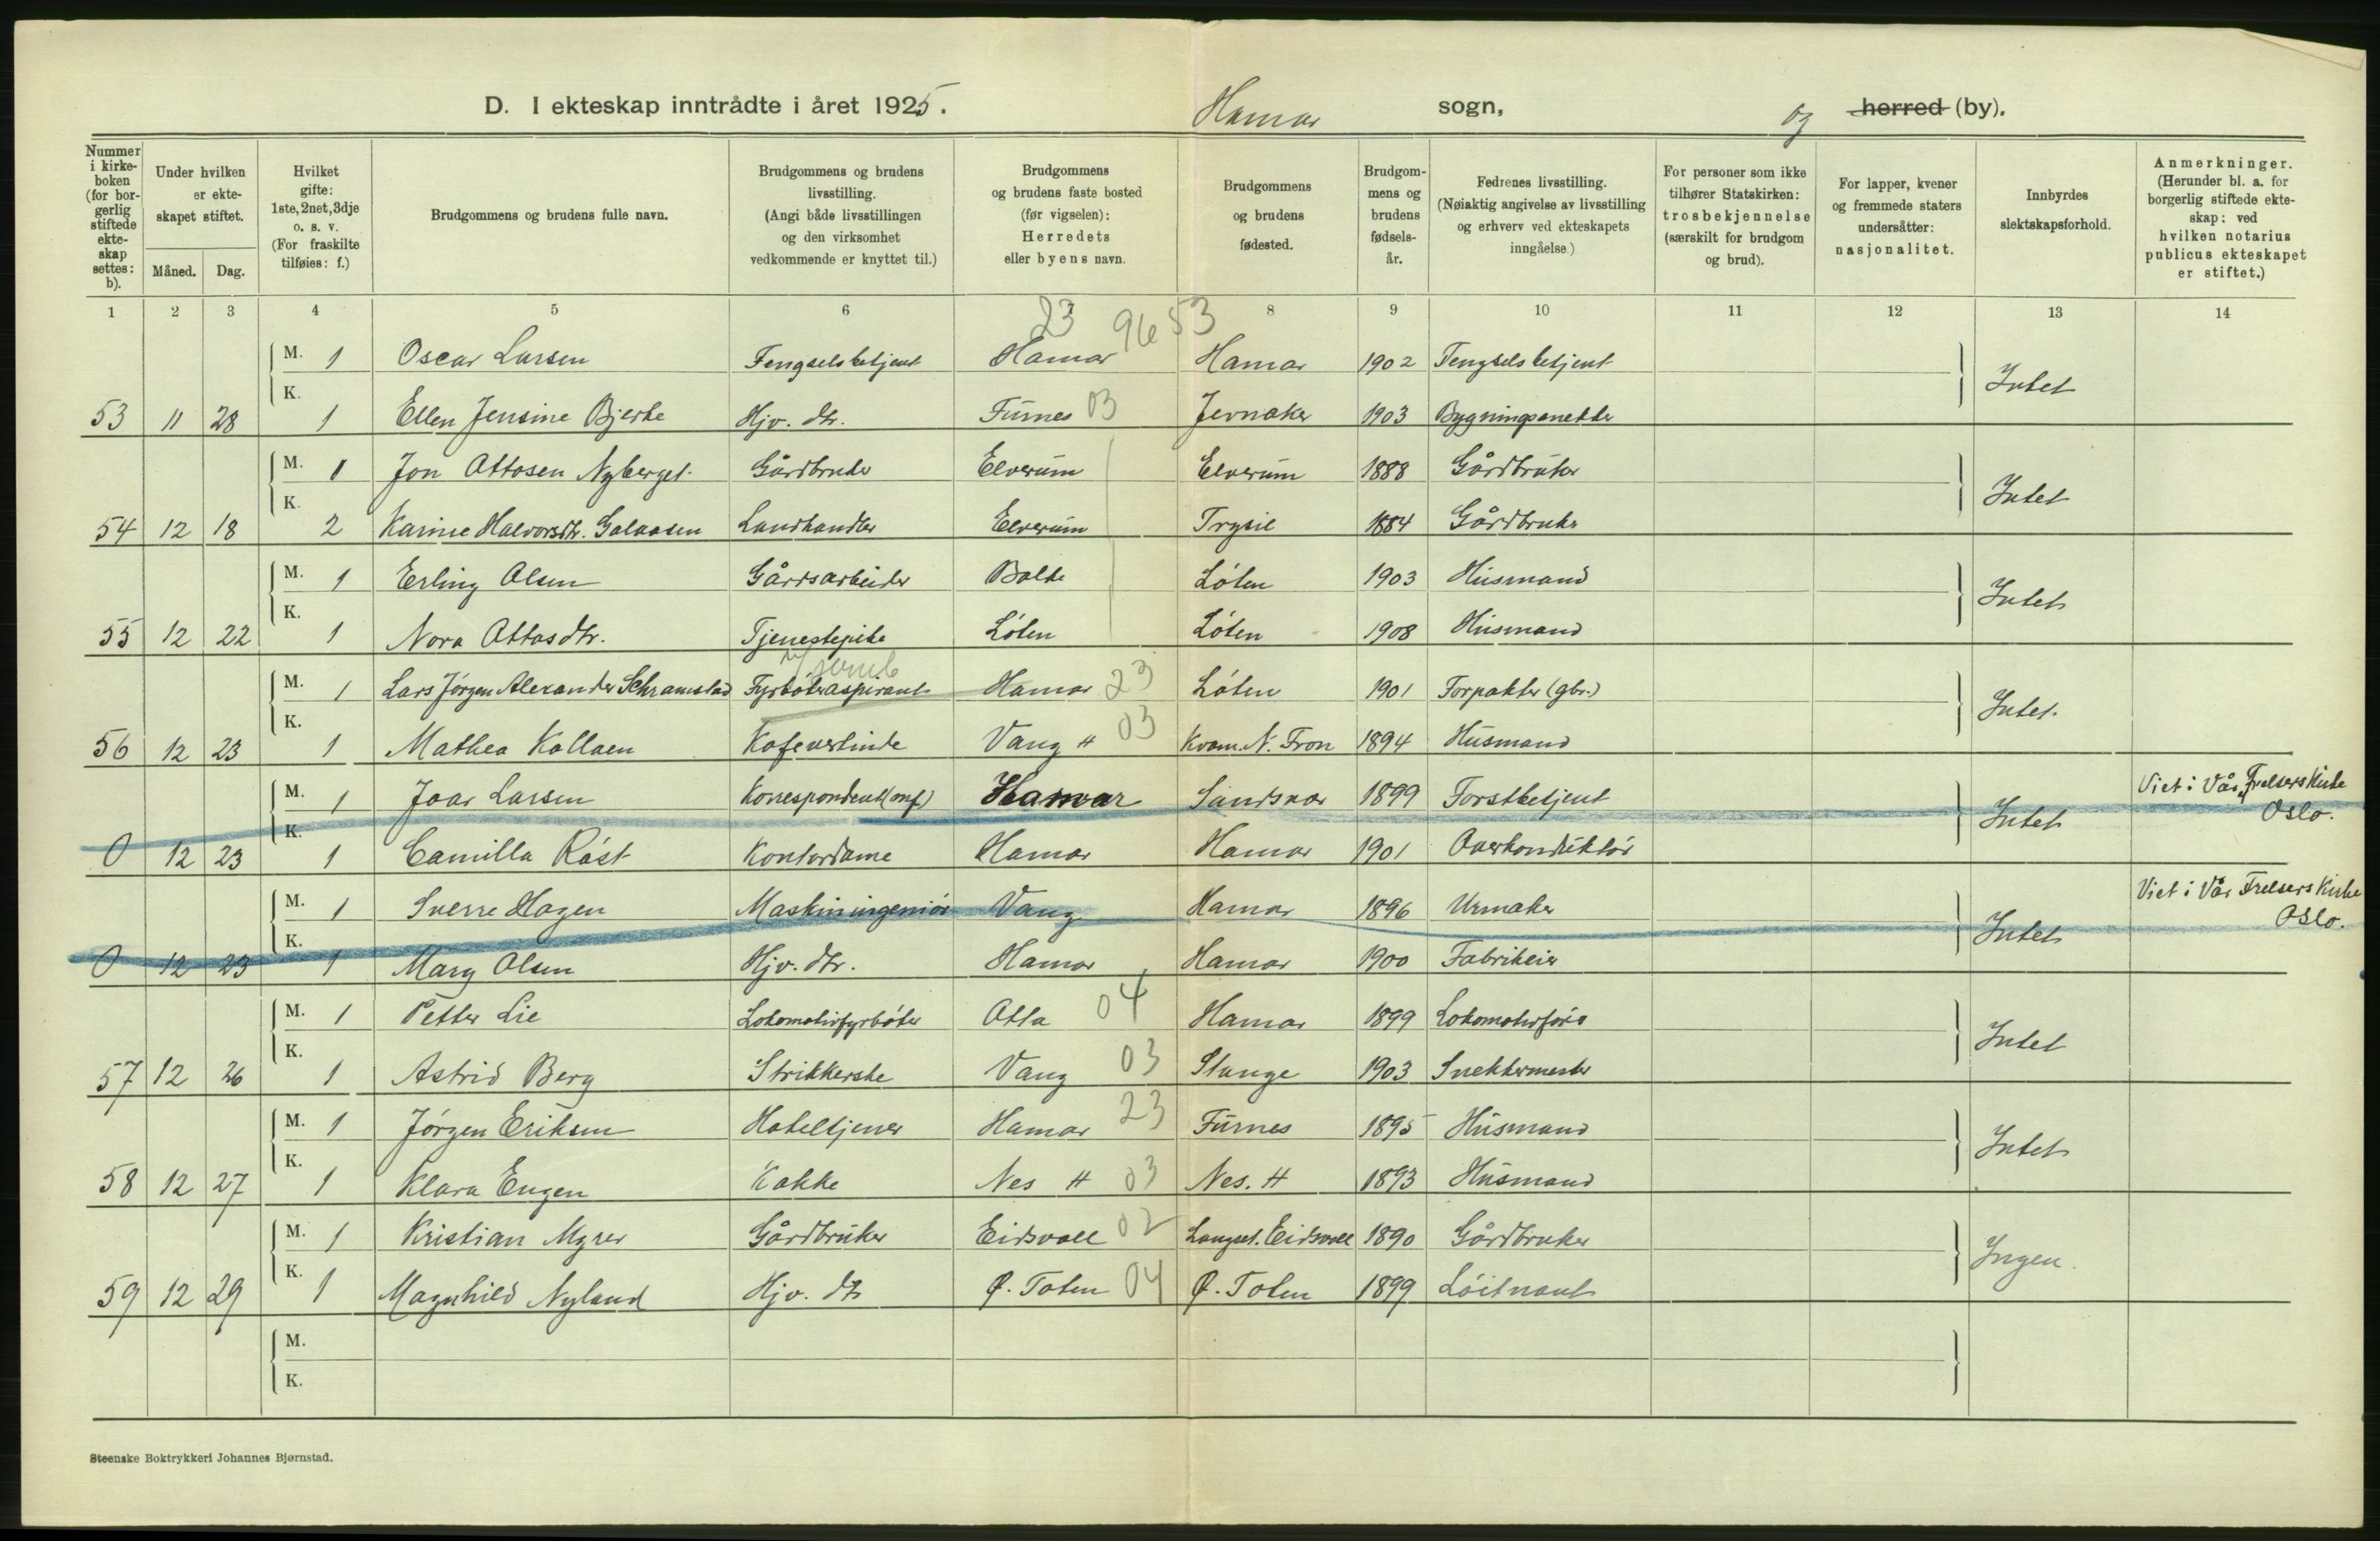 D. I ekteskap inntrådte i året 1925. Hamar sogn, og herred (by).
Nummer i kirke-boken (for bor-gerlig stiftede ekte-skap settes: b).
Under hvilken er ekte-skapet stiftet.
Måned. Dag.
Hvilket gifte: 1ste, 2net, 3dje o. s. v. (For fraskilte tilføies: f.)
Brudgommens og brudens fulle navn.
Brudgommens og brudens livsstilling. (Angi både livsstillingen og den virksomhet vedkommende er knyttet til.)
Brudgommens og brudens faste bosted (før vigselen): Herredets eller byens navn.
Brudgommens og brudens fødested.
Brudgom-mens og brudens fødsels-år.
Fedrenes livsstilling. (Nøiaktig angivelse av livsstilling og erhverv ved ekteskapets inngåelse.)
For personer som ikke tilhører Statskirken: trosbekjennelse (særskilt for brudgom og brud).
For lapper, kvener og fremmede staters undersåtter: nasjonalitet.
Innbyrdes slektskapsforhold.
Anmerkninger. (Herunder bl. a. for borgerlig stiftede ekte-skap: ved hvilken notarius publicus ekteskapet er stiftet.)
1 2 3 4 5 6 7 8 9 10 11 12 13 14
23 96 53
M. 1 Oscar Larsen Fengselsbetjent Hamar Hamar 1902 Fengselsbetjent
Intet
K.
53 11 28 1 Ellen Jensine Bjerke Hjv. dtr. Furnes 03 Jevnaker 1903 Bygningssnekker
M. 1 Jon Ottosen Nyberget Gårdbruker Elverum Elverum 1888 Gårdbruker
Intet
K.
54 12 18 2 Karine Halvorsdtr. Galaasen Landhandler Elverum Trysil 1884 Gårdbruker
M. 1 Erling Olsen Gårdsarbeider Balke Løten 1903 Husmand
Intet
K.
55 12 22 1 Nora Ottosdtr. Tjenestepike Løten Løten 1908 Husmand
M. 1 Lars Jørgen Alexander Schramstad Fyrbøteraspirant Hamar 23 Løten 1901 Forpakter (gbr.)
Intet.
K.
56 12 23 1 Mathea Kollaen Kafevertinde Vang H 03 Kvam. N. Fron 1894 Husmand
M. 1 Joar Larsen Korrespondent Hamar Sandsvær 1899 Forstbetjent Viet i Vår Frelsers Kirke
Intet Oslo.
K.
0 12 23 1 Camilla Røst Kontordame Hamar Hamar 1901 Overkonduktør
M. 1 Sverre Hagen Maskiningeniør Vang Hamar 1896 Urmaker Viet i Vår Frelsers Kirke
Intet Oslo.
K.
0 12 23 1 Mary Olsen Hjv. dtr. Hamar Hamar 1900 Fabrikeier
M. 1 Petter Lie Lokomotivfyrbøter Otta 04 Hamar 1899 Lokomotivfører
Intet
K.
57 12 26 1 Astrid Berg Strikkerske Vang 03 Stange 1903 Snekkermester
M. 1 Jørgen Eriksen Hoteltjener Hamar 23 Furnes 1895 Husmand
Intet
K.
58 12 27 1 Klara Engen Kokke Nes H 03 Nes. H 1893 Husmand
M. 1 Kristian Myrer Gårdbruker Eidsvoll 02 Langset. Eidsvoll 1890 Gårdbruker
Ingen.
K.
59 12 29 1 Magnhild Nyland Hjv. dtr Ø. Toten 04 Ø. Toten 1899 Løitnant
M.
K.
Steenske Boktrykkeri Johannes Bjørnstad.